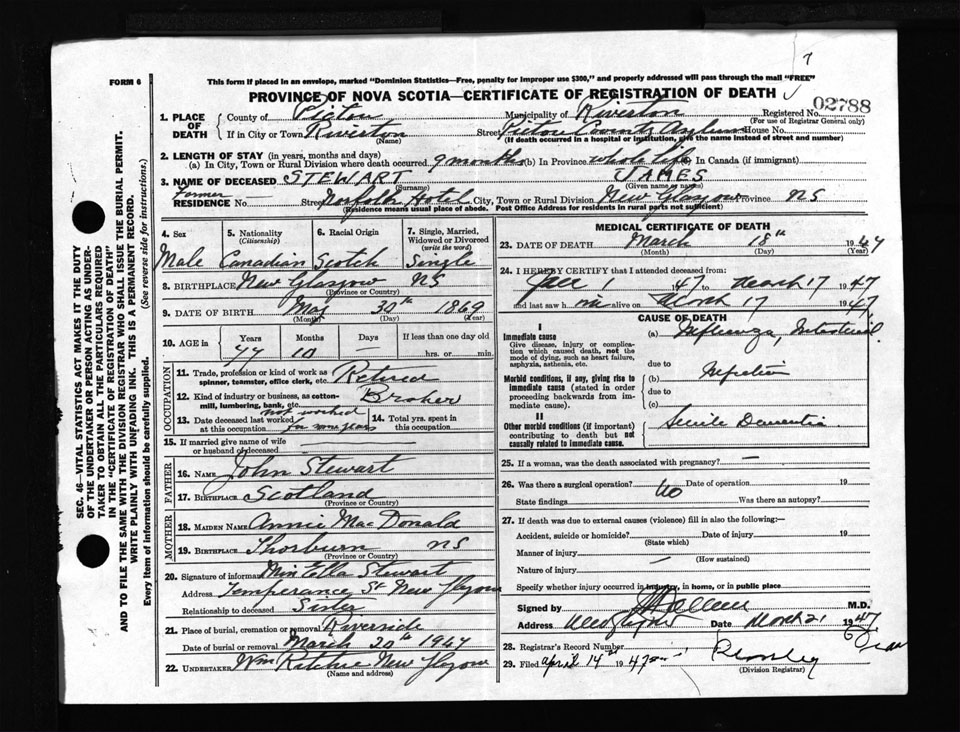 FORM 6
This form if placed in an envelope, marked "Dominion Statistics—Free, penalty for improper use $300," and properly addressed will pass through the mail "FREE"
PROVINCE OF NOVA SCOTIA—CERTIFICATE OF REGISTRATION OF DEATH
02788
1. PLACE OF DEATH
County of Pictou Municipality of Riverton Registered No.
(For use of Registrar General only)
If in City or Town Riverton Street Pictou County Asylum House No.
(Name) (If death occurred in a hospital or institution, give the name instead of street and number)
2. LENGTH OF STAY (in years, months and days)
(a) In City, Town or Rural Division where death occurred 9 months (b) In Province whole life (c) In Canada (if immigrant)
3. NAME OF DECEASED STEWART JAMES
(Surname) (Given name or names)
Former
RESIDENCE No. — Street Norfolk Hotel City, Town or Rural Division New Glasgow Province NS
(Residence means usual place of abode. Post Office Address for residents in rural parts not sufficient)
4. Sex
Male
5. Nationality
(Citizenship)
Canadian
6. Racial Origin
Scotch
7. Single, Married, Widowed or Divorced
(write the word)
Single
8. BIRTHPLACE New Glasgow NS
(Province or Country)
9. DATE OF BIRTH May 30th 1869
(Month) (Day) (Year)
10. AGE in
Years Months Days If less than one day old
77 10 — hrs. or min.
OCCUPATION
11. Trade, profession or kind of work as spinner, teamster, office clerk, etc. Retired
12. Kind of industry or business, as cotton-mill, lumbering, bank, etc. Broker
13. Date deceased last worked at this occupation not worked for some years
14. Total yrs. spent in this occupation
15. If married give name of wife or husband of deceased
FATHER
16. NAME John Stewart
17. BIRTHPLACE Scotland
(Province or Country)
MOTHER
18. MAIDEN NAME Annie MacDonald
19. BIRTHPLACE Thorburn NS
(Province or Country)
20. Signature of informant Miss Etta Stewart
Address Temperance St New Glasgow
Relationship to deceased Sister
21. Place of burial, cremation or removal Riverside
Date of burial or removal March 20th 1947
22. UNDERTAKER Wm Ritchie New Glasgow
(Name and address)
MEDICAL CERTIFICATE OF DEATH
23. DATE OF DEATH March 18th 1947
(Month) (Day) (Year)
24. I HEREBY CERTIFY that I attended deceased from:
Jan 1 1947 to March 17 1947
and last saw him alive on March 17 1947
CAUSE OF DEATH
I
Immediate cause
Give disease, injury or complication which caused death, not the mode of dying, such as heart failure, asphyxia, asthenia, etc.
(a) Influenza, Intestinal
due to
Morbid conditions, if any, giving rise to immediate cause (stated in order proceeding backwards from immediate cause).
(b) Infection
due to
(c)
II
Other morbid conditions (if important) contributing to death but not causally related to immediate cause.
Senile Dementia
25. If a woman, was the death associated with pregnancy? —
26. Was there a surgical operation? No Date of operation 19
State findings Was there an autopsy?
27. If death was due to external causes (violence) fill in also the following:—
Accident, suicide or homicide? Date of injury 19
(State which)
Manner of injury —
(How sustained)
Nature of injury
Specify whether injury occurred in industry, in home, or in public place
Signed by M.D.
Address New Glasgow Date March 21 1947
28. Registrar's Record Number
29. Filed April 14th 1947
(Division Registrar)
SEC. 46—VITAL STATISTICS ACT MAKES IT THE DUTY
OF THE UNDERTAKER OR PERSON ACTING AS UNDERTAKER TO OBTAIN ALL THE PARTICULARS REQUIRED
IN THE "CERTIFICATE OF REGISTRATION OF DEATH"
AND TO FILE THE SAME WITH THE DIVISION REGISTRAR WHO SHALL ISSUE THE BURIAL PERMIT.
WRITE PLAINLY WITH UNFADING INK. THIS IS A PERMANENT RECORD.
Every item of information should be carefully supplied. (See reverse side for instructions.)